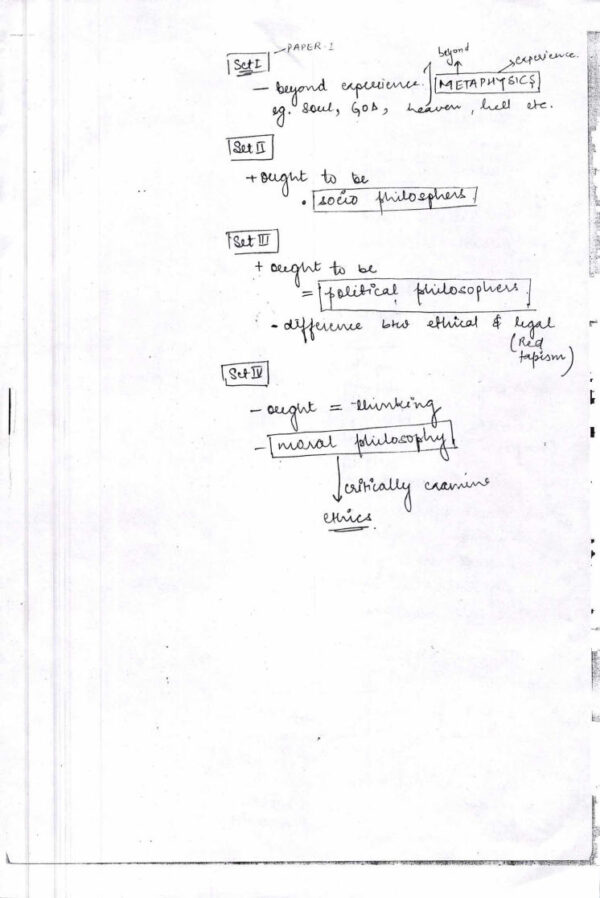 Set I - PAPER-1
beyond experience.
- beyond experience. METAPHYSICS
eg. soul, GOD, heaven, hell etc.
Set II
+ ought to be
• socio philosophers
Set III
+ ought to be
= political philosophers
- difference btw ethical & legal
(Red tapism)
Set IV
- ought = thinking
- moral philosophy
critically examine
ethics